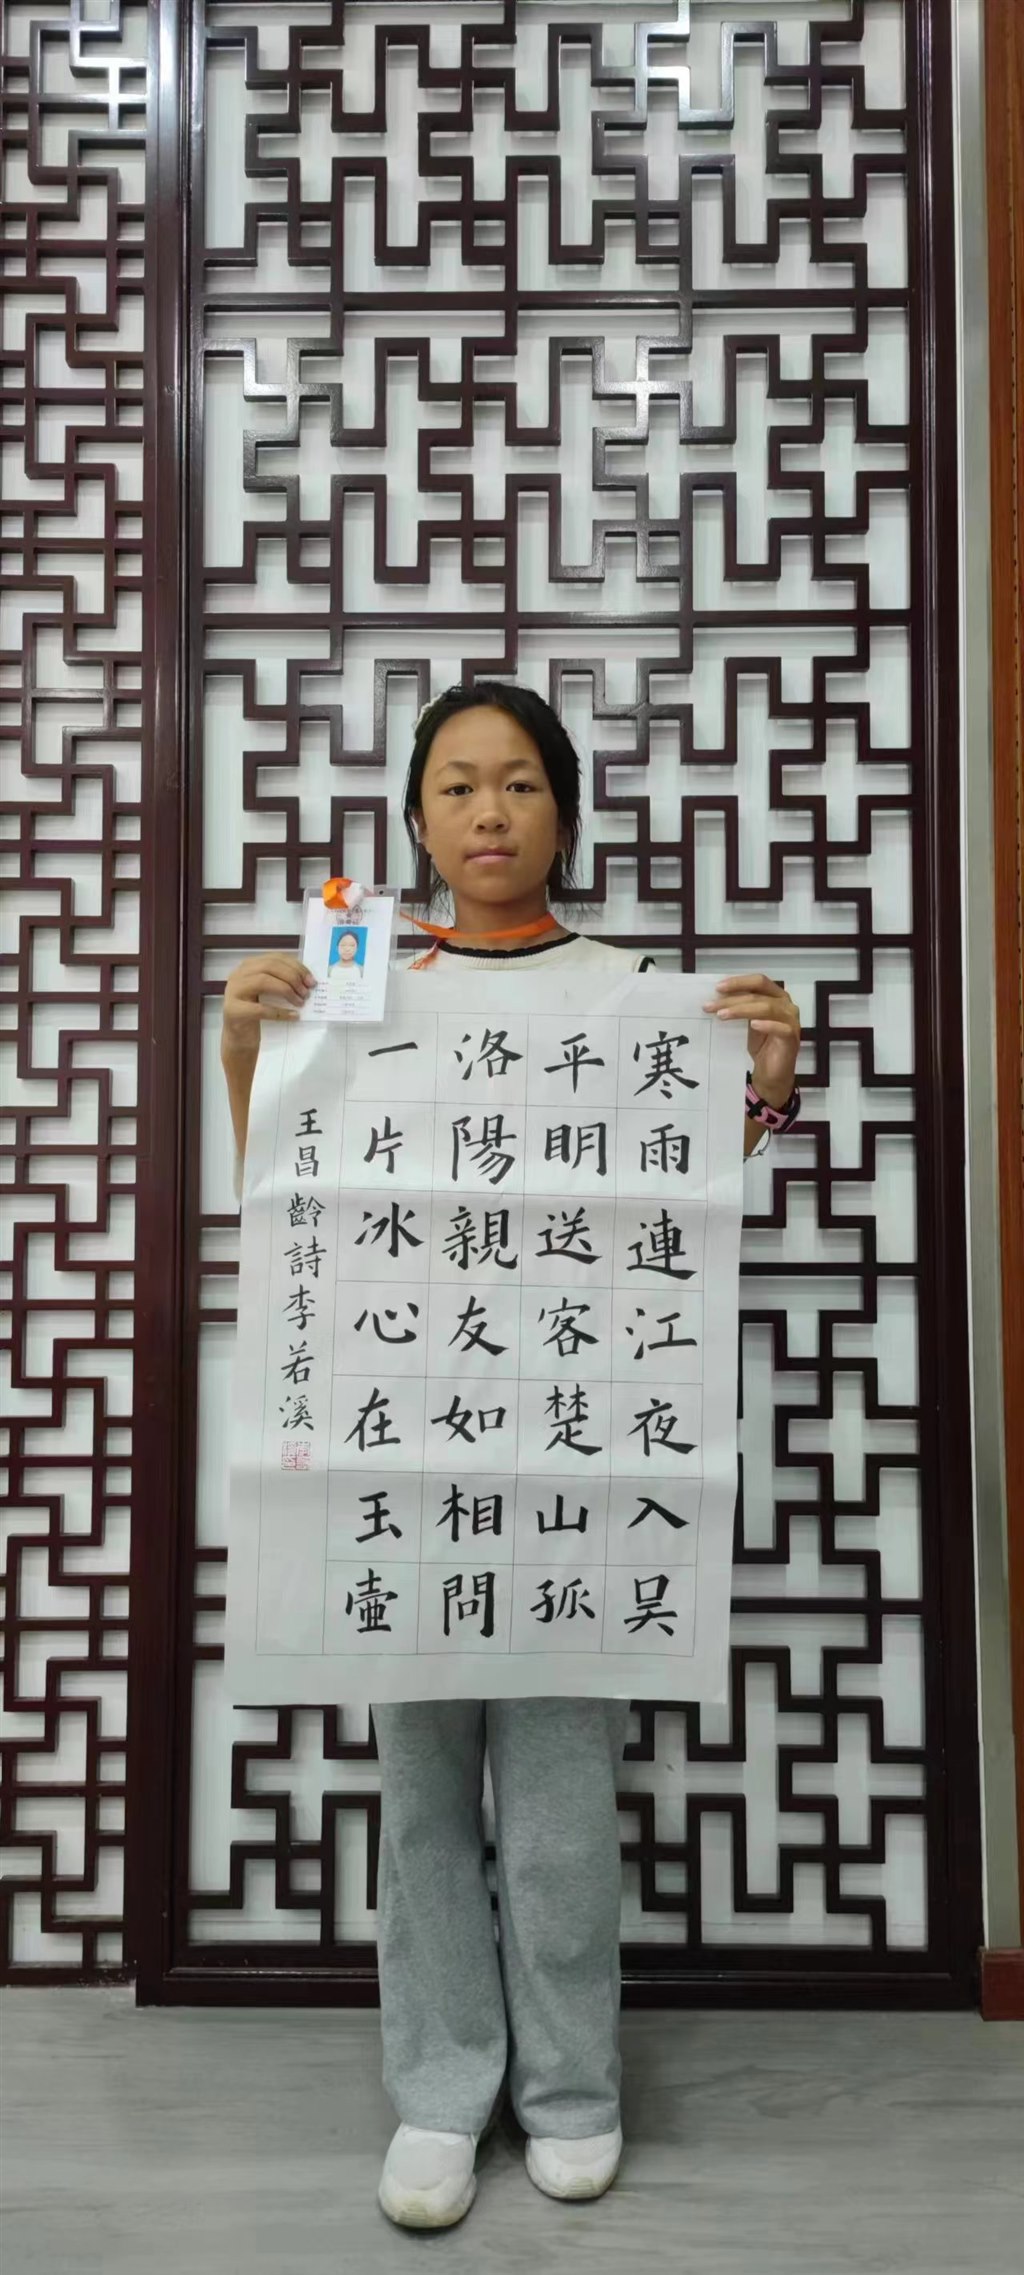 寒雨連江夜入吴
平明送客楚山孤
洛陽親友如相問
一片冰心在玉壺
王昌齡詩李若溪